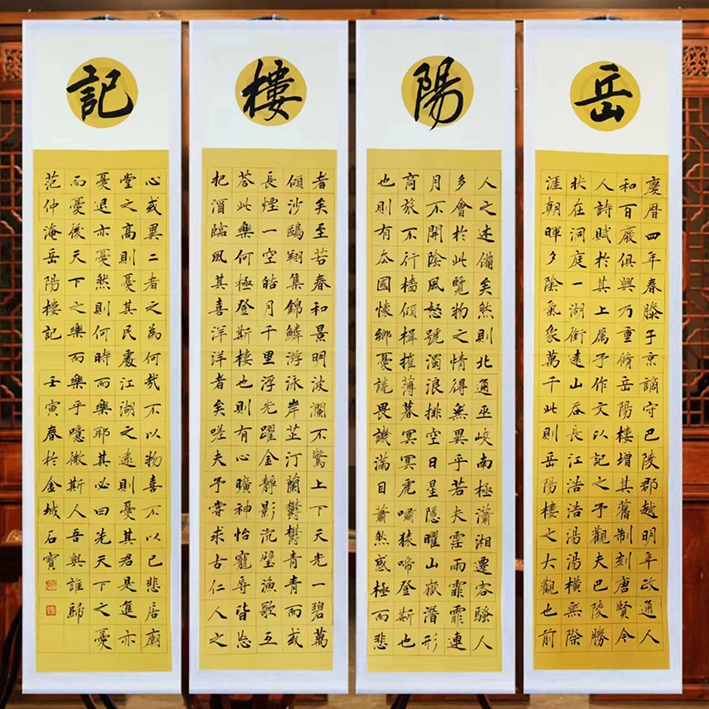 岳
慶曆四年春滕子京謫守巴陵郡越明年政通人
和百廢俱興乃重脩岳陽樓增其舊制刻唐賢今
人詩賦於其上屬予作文以記之予觀夫巴陵勝
狀在洞庭一湖銜遠山吞長江浩浩湯湯橫無際
涯朝暉夕陰氣象萬千此則岳陽樓之大觀也前
陽
人之述備矣然則北通巫峽南極瀟湘遷客騷人
多會於此覽物之情得無異乎若夫霪雨霏霏連
月不開陰風怒號濁浪排空日星隱曜山嶽潛形
商旅不行檣傾楫摧薄暮冥冥虎嘯猿啼登斯也
也則有去國懷鄉憂讒畏譏滿目蕭然感極而悲
樓
者矣至若春和景明波瀾不驚上下天光一碧萬
傾沙鷗翔集錦鱗游泳岸芷汀蘭鬱鬱青青而或
長煙一空皓月千里浮光躍金靜影沉璧漁歌互
答此樂何極登斯樓也則有心曠神怡寵辱皆忘
把酒臨風其喜洋洋者矣嗟夫予嘗求古仁人之
記
心或異二者之為何哉不以物喜不以己悲居廟
堂之高則憂其民處江湖之遠則憂其君是進亦
憂退亦憂然則何時而樂耶其必曰先天下之憂
而憂後天下之樂而樂乎噫微斯人吾與誰歸
范仲淹岳陽樓記 壬寅春於金城石寶